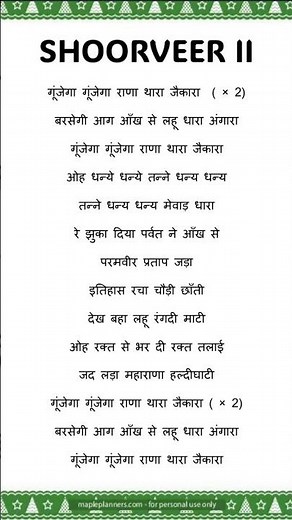 SHOORVEER II
गूंजेगा गूंजेगा राणा थारा जैकारा ( × 2)
बरसेगी आग आँख से लहू धारा अंगारा
गूंजेगा गूंजेगा राणा थारा जैकारा
ओह धन्ये धन्ये तन्ने धन्य धन्य
तन्ने धन्य धन्य मेवाड़ धारा
रे झुका दिया पर्वत ने आँख से
परमवीर प्रताप जड़ा
इतिहास रचा चौड़ी छाँती
देख बहा लहू रंगदी माटी
ओह रक्त से भर दी रक्त तलाई
जद लड़ा महाराणा हल्दीघाटी
गूंजेगा गूंजेगा राणा थारा जैकारा ( × 2)
बरसेगी आग आँख से लहू धारा अंगारा
गूंजेगा गूंजेगा राणा थारा जैकारा
mapleplanners.com - for personal use only